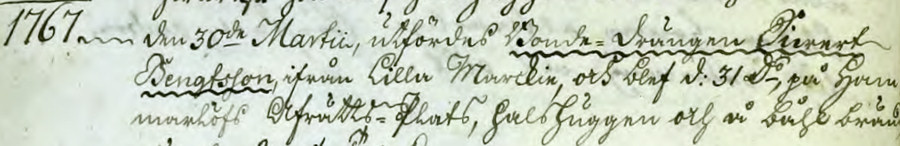 1767. den 30de Martii, utfördes Bonde=Drängen Sivert
Bengtsson, ifrån Lilla Marckie, och blef d: 31 Do, på Ham
marlöfs Afrätts=Plats, halshuggen och å båhl brän